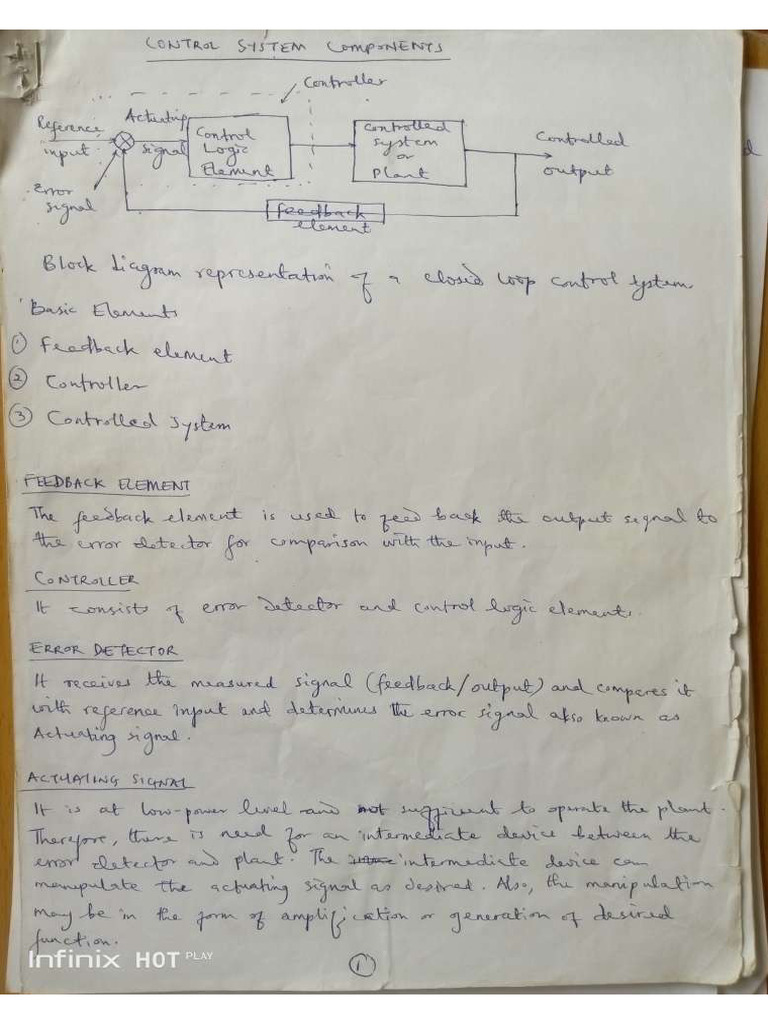 CONTROL SYSTEM COMPONENTS
Controller
Reference input
Actuating signal
Control Logic Element
Controlled system or Plant
Controlled output
Error signal
feedback element
Block diagram representation of a closed loop control system
Basic Elements
① Feedback element
② Controller
③ Controlled system
FEEDBACK ELEMENT
The feedback element is used to feed back the output signal to
the error detector for comparison with the input.
CONTROLLER
It consists of error detector and control logic elements.
ERROR DETECTOR
It receives the measured signal (feedback/output) and compares it
with reference input and determines the error signal also known as
Actuating signal.
ACTUATING SIGNAL
It is at low-power level and not sufficient to operate the plant.
Therefore, there is need for an intermediate device between the
error detector and plant. The intermediate device can
manipulate the actuating signal as desired. Also, the manipulation
may be in the form of amplification or generation of desired
function.
Infinix HOT PLAY
1